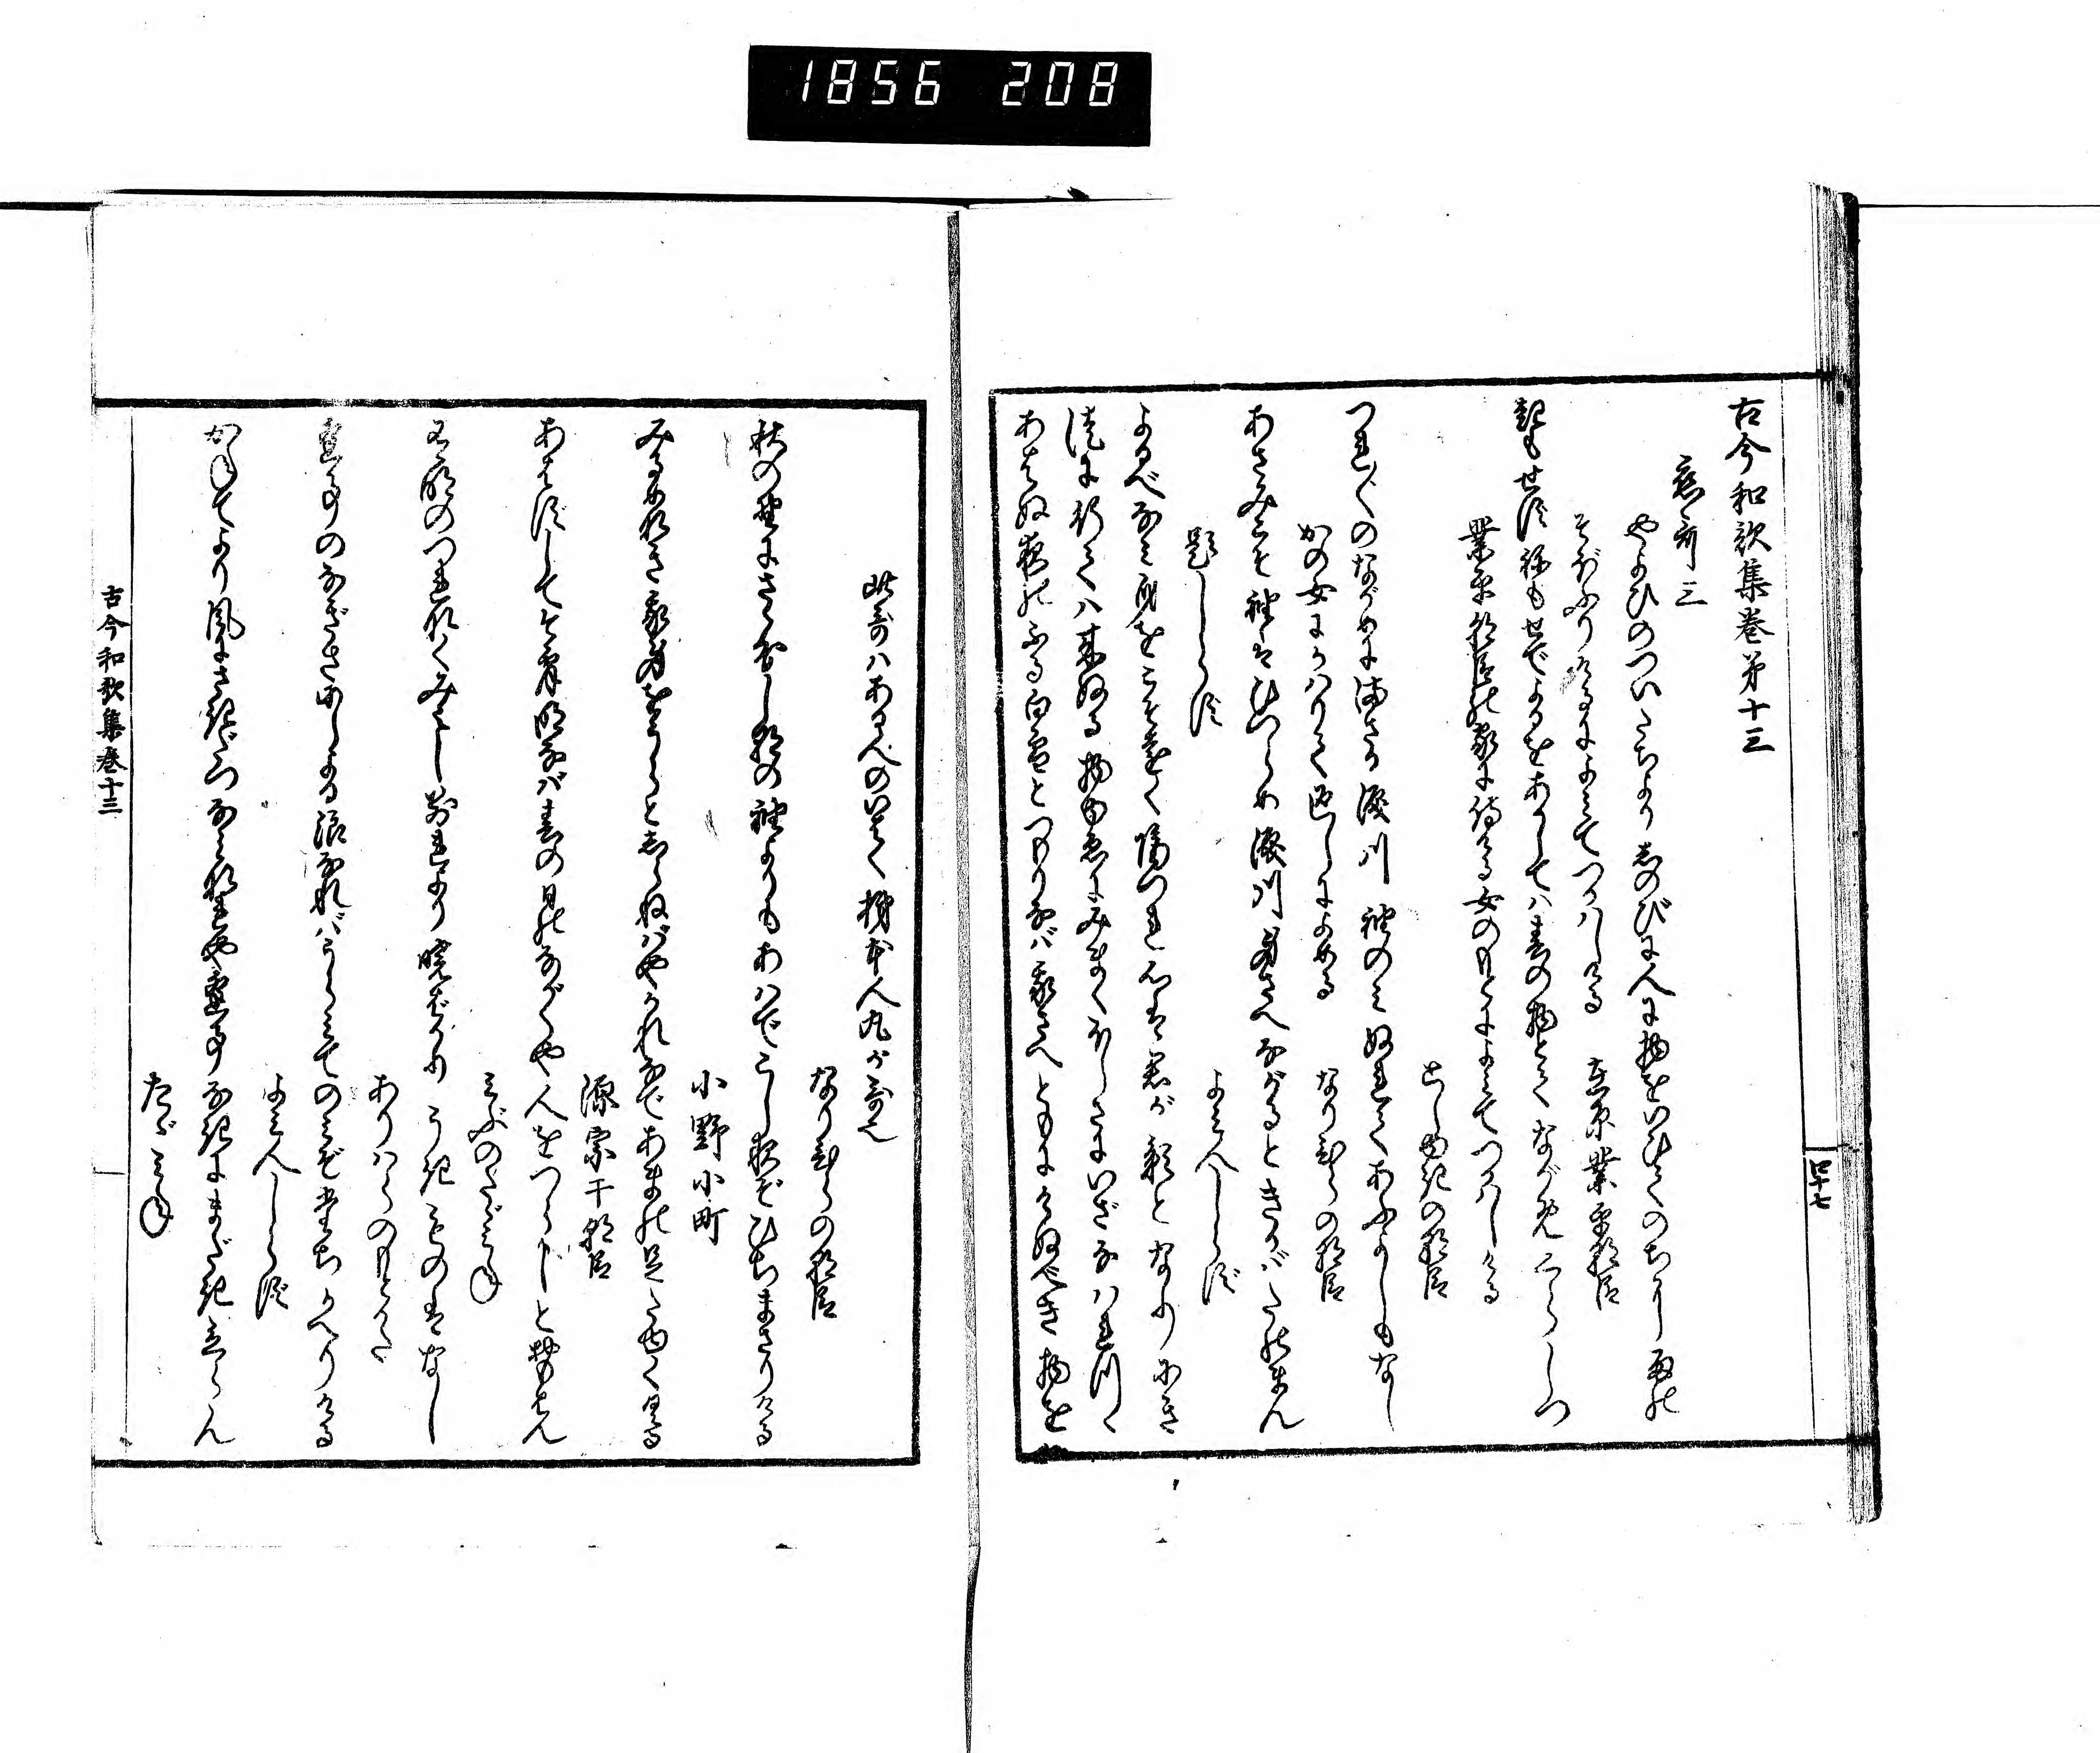 1856 208
古今和歌集巻第十三
恋哥三
やよひのついたちより忍のびに人に物をいひてのちに雨の
そぼふりけるによみてつかはしける 在原業平朝臣
起もせずねもせでよるをあかしては春の物とてながめくらしつ
業平朝臣の家に侍ける女のもとによみてつかはしける
としゆきの朝臣
つれ〴〵のながめにまさる涙川袖のみぬれてあふよしもなし
かの女にかはりて返しによめる なりひらの朝臣
あさみこそ袖はひつらめ涙川身さへながるときかばたのまん
題しらず よみ人しらず
よるべなみ身をこそ遠く隔つれ心は君が影となりにき
徒に行ては来ぬる物ゆゑにみまくほしさにいざなはれつゝ
あはぬ夜のふる白雪とつもりなば我さへともにけぬべき物を
此哥はある人のいはく柿本人丸が哥也
なりひらの朝臣
秋の野にさゝ分し朝の袖よりもあはでこし夜ぞひちまさりける
小野小町
みるめなき我身をうらとしらねばやかれなであまの足たゆくくる
源宗于朝臣
あはずしてこよひ明なば春の日のながくや人をつらしと思はん
みぶのたゞみね
有明のつれなくみえし別より暁ばかりうき物はなし
ありはらのもとかた
逢事のなぎさにしよる浪なればうらみてのみぞ立かへりける
よみ人しらず
かねてより風にさきだつ浪なれや逢事なきにまだき立らん
たゞみね
古今和歌集巻十三
四十七